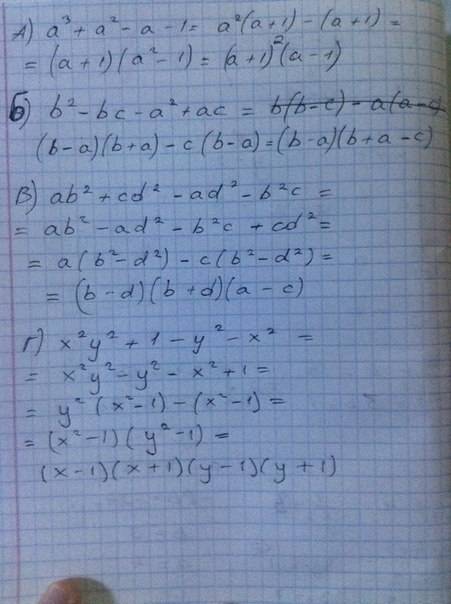 А) a³ + a² - a - 1 = a²(a+1) - (a+1) =
= (a+1)(a²-1) = (a+1)²(a-1)
б) b² - bc - a² + ac = b(b-c) - a(a-c)
(b-a)(b+a) - c(b-a) = (b-a)(b+a-c)
В) ab² + cd² - ad² - b²c =
= ab² - ad² - b²c + cd² =
= a(b²-d²) - c(b²-d²) =
= (b-d)(b+d)(a-c)
Г) x²y² + 1 - y² - x² =
= x²y² - y² - x² + 1 =
= y²(x²-1) - (x²-1) =
= (x²-1)(y²-1) =
(x-1)(x+1)(y-1)(y+1)